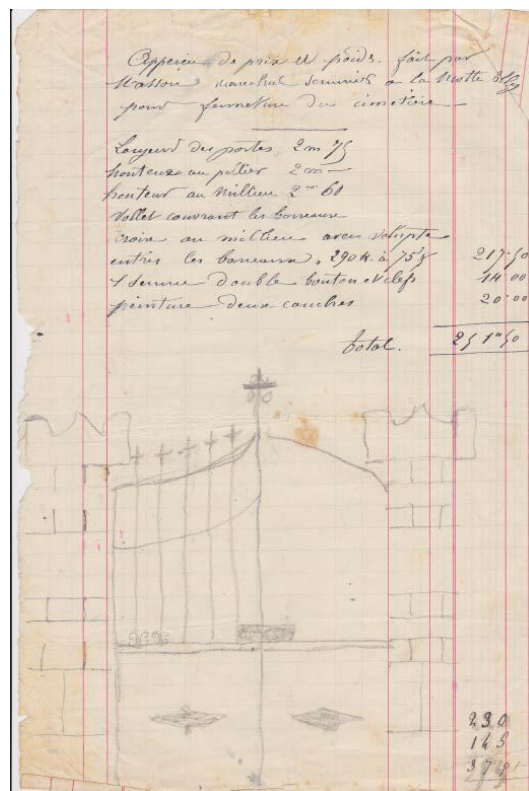 Apperçu de prix et poids fait par
Masson marechal serurier a la Motte
pour fermeture du cimetière
Largeurs des portes 2 m 75
hauteur au pillier 2 m
hauteur au millieu 2 m 60
vollet couvrant les barreaux
croix au millieu avec volupte
entres les barreaux. 290 k. à 75 217.50
1 serrure double bouton et clefs 14 00
peinture deux couches 20.00
total. 251 50
230
145